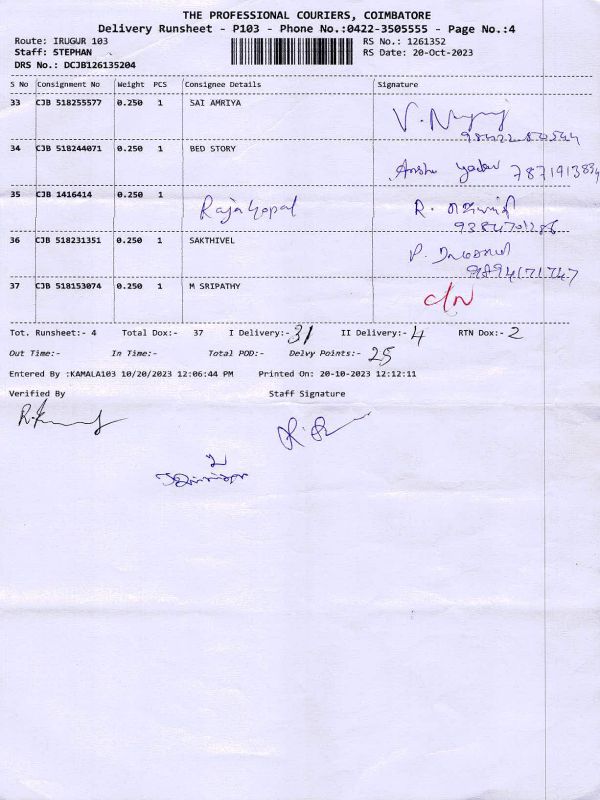 THE PROFESSIONAL COURIERS, COIMBATORE
Delivery Runsheet - P103 - Phone No.:0422-3505555 - Page No.:4
Route: IRUGUR 103 RS No.: 1261352
Staff: STEPHAN RS Date: 20-Oct-2023
DRS No.: DCJB126135204
S No Consignment No Weight PCS Consignee Details Signature
33 CJB 518255577 0.250 1 SAI AMRIYA
34 CJB 518244071 0.250 1 BED STORY
Anshu yadav
35 CJB 1416414 0.250 1
Rajagopal R.
9384701286
36 CJB 518231351 0.250 1 SAKTHIVEL
P.
9894171747
37 CJB 518153074 0.250 1 M SRIPATHY
Tot. Runsheet:- 4 Total Dox:- 37 I Delivery:- 31 II Delivery:- 4 RTN Dox:- 2
Out Time:- In Time:- Total POD:- Delvy Points:- 25
Entered By :KAMALA103 10/20/2023 12:06:44 PM Printed On: 20-10-2023 12:12:11
Verified By Staff Signature